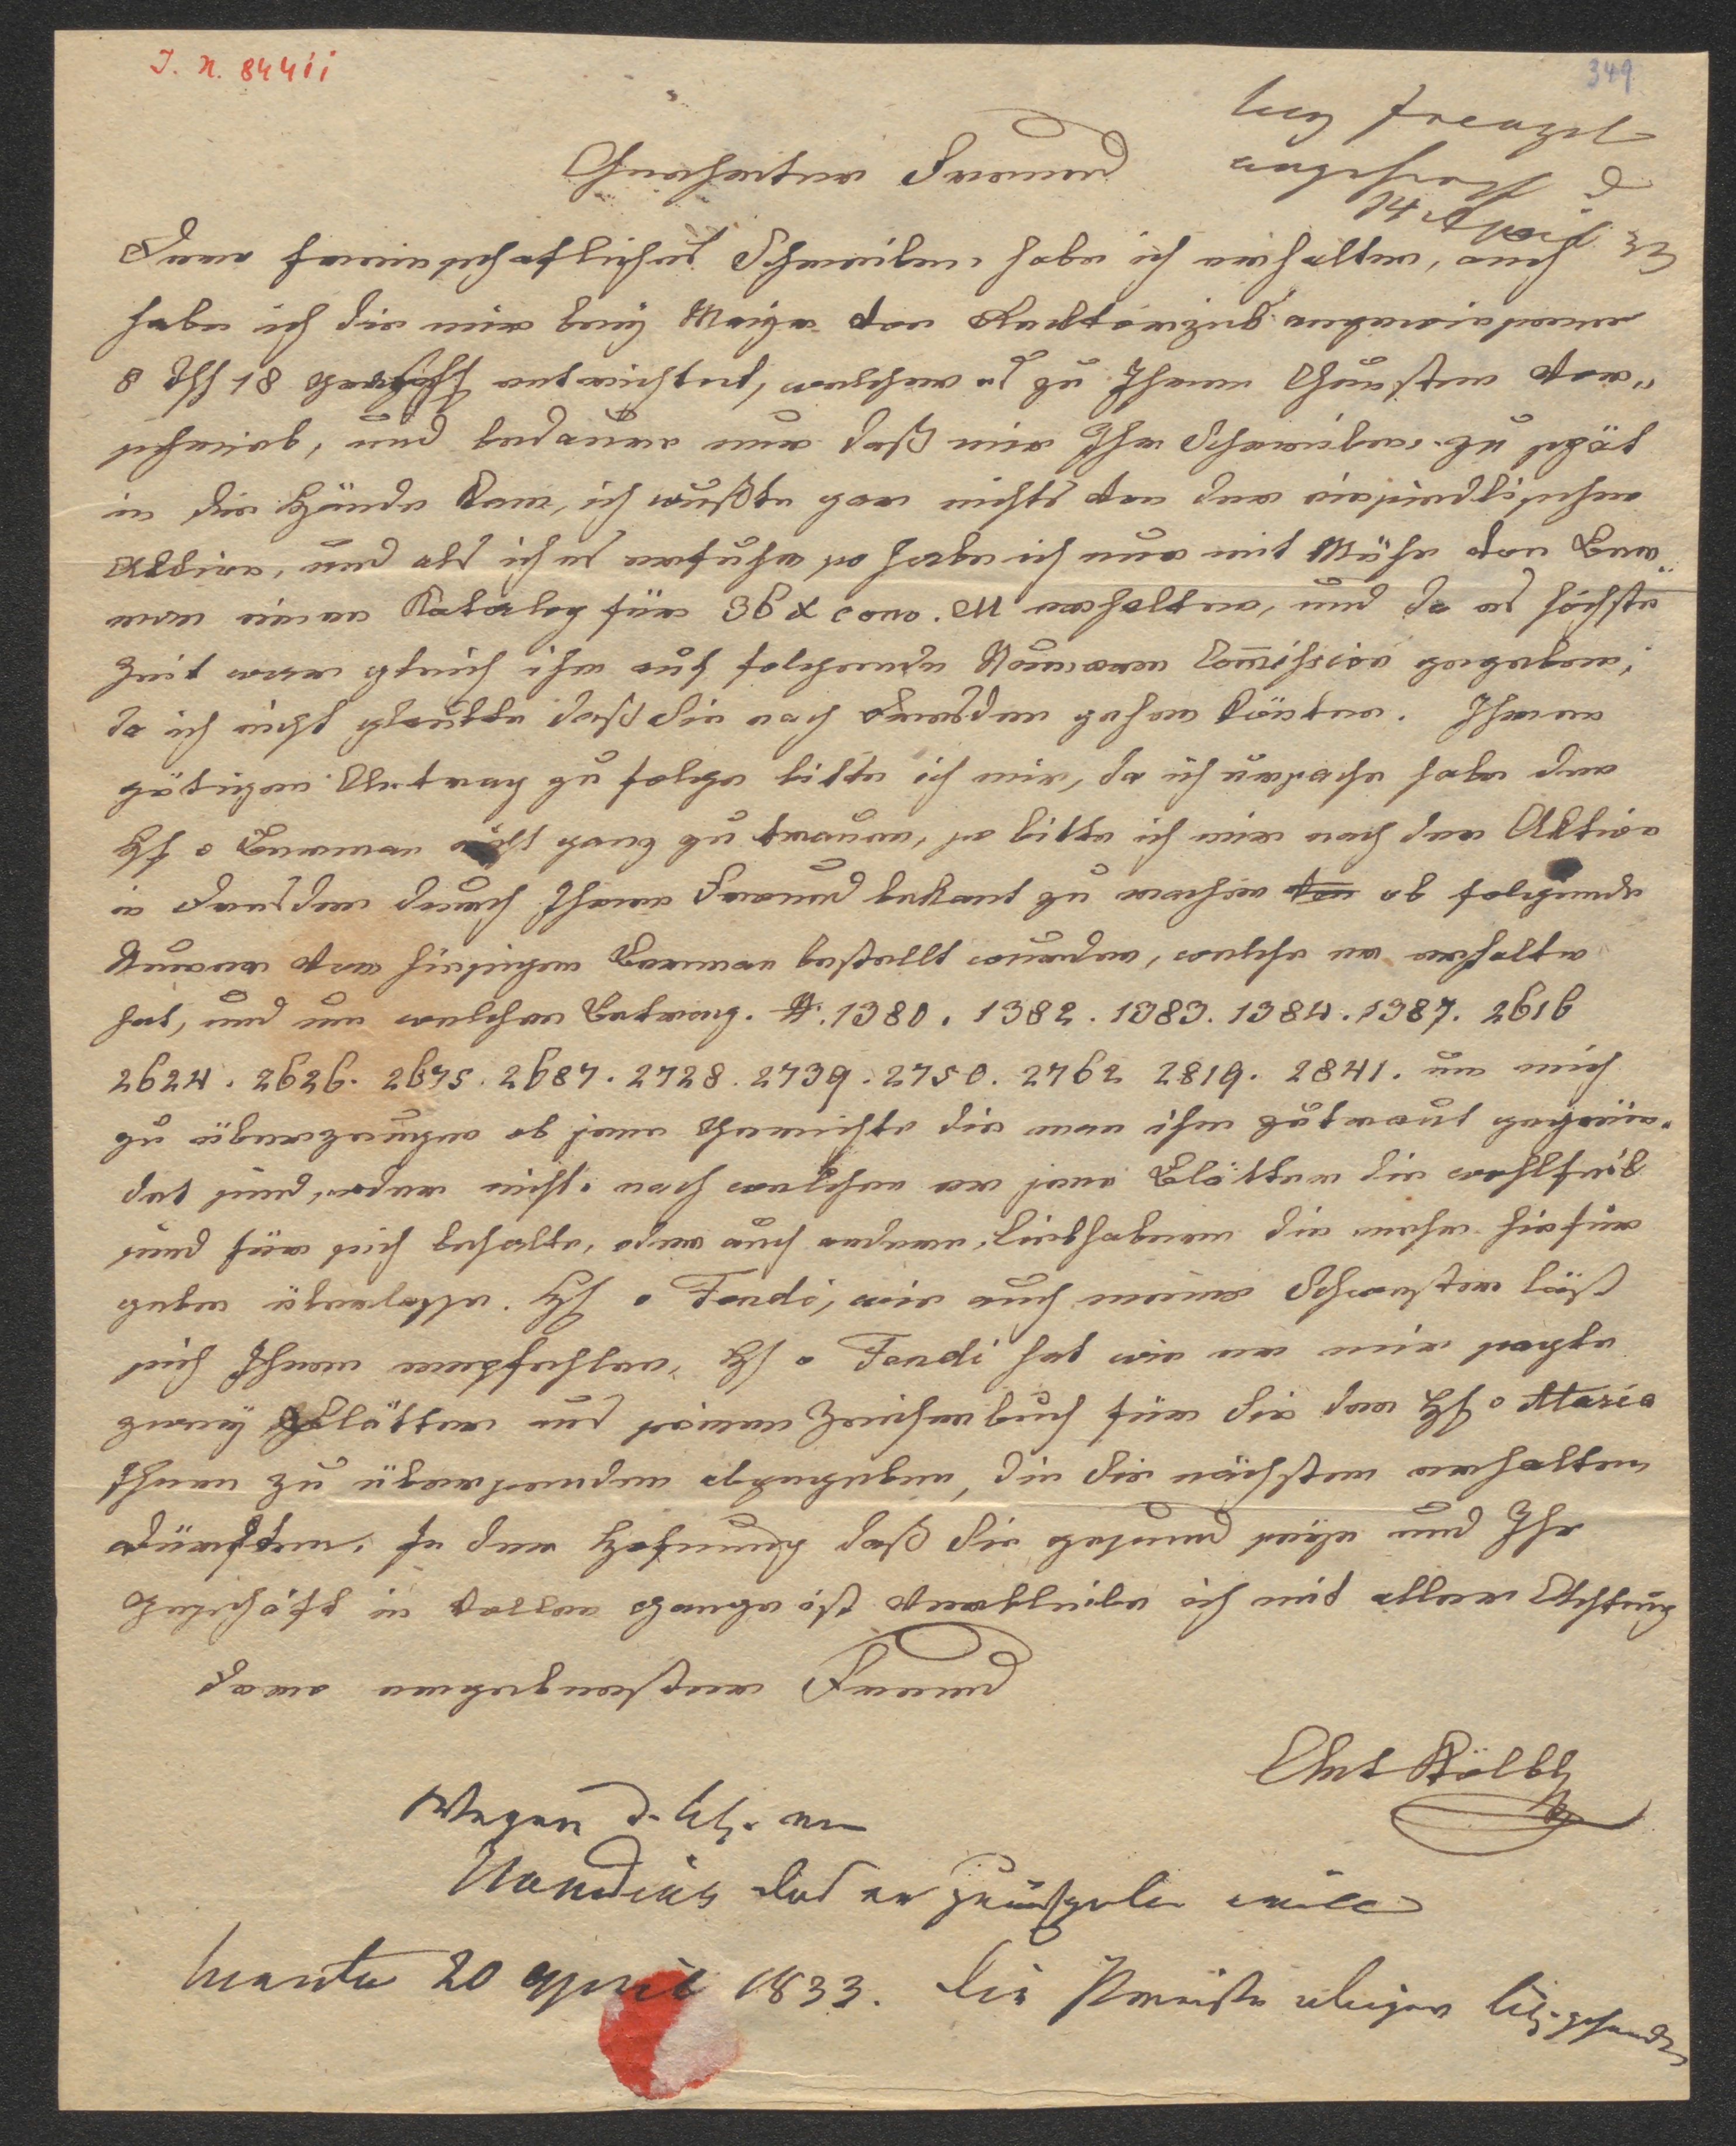 I. N. 84411
349
bey Frenzel
angefragt d
14 April 33
Geehrter Freund
Dero freundschaftliches Schreiben habe ich erhalten, auch
habe ich die mir bey Maÿer von
8 18 entrichtet, welcher es zu Ihren Gunsten vor„
schrieb, und bedauere nur daß mir Ihr Schreiben zu spät
in die Hände kam, ich wußte gar nichts von der
Aktion, und als ich es erfuhr so habe ich nur mit Mühe von Ber„
man einen Katalog für 36 x conv. M erhalten, und da es höchste
Zeit war gleich ihm auf folgende Numeren Com̄ission gegeben,
da ich nicht glaubte daß Sie nach Dresden gehen könten. Ihrem
gütigen Antrag zu folge bitte ich mir, da ich ursache habe den
H Berman nicht ganz zu trauen, so bitte ich mir nach der Aktion
in Dresden durch Ihren Freund bekant zu machen ob folgende
Numer von hiesigen Berman bestellt wurden, welche er erhalten
hat, und um welchen Betrag. N. 1380. 1382. 1383. 1384. 1387. 2616
2624. 2626. 2675. 2687. 2728. 2739. 2750. 2762 2819. 2841. um mich
zu überzeugen ob jene Gerüchte die man ihm zutraut gegrün„
det sind, oder nicht. nach welchen er jene Blätter die wohlfeil
sind für sich behalte, oder auch andern Liebhabern die mehr hiefür
geben überlasse. H Fendi, wie auch meine Schwester läßt
sich Ihnen empfehlen, H Fendi hat wie er mir sagte
zweÿ Blätter aus seinem Zeichenbuch für Sie den H
Ihnen zu übersenden abgegeben, die Sie nächstens erhalten
dürften. In der Hofnung daß Sie gesund seÿn und Ihr
Geschäft in vollen Gange ist verbleibe ich mit aller Achtung
Dero ergebenster Freund
Ant Kölbl
Wegen d.
das er will
20 April 1833. Die